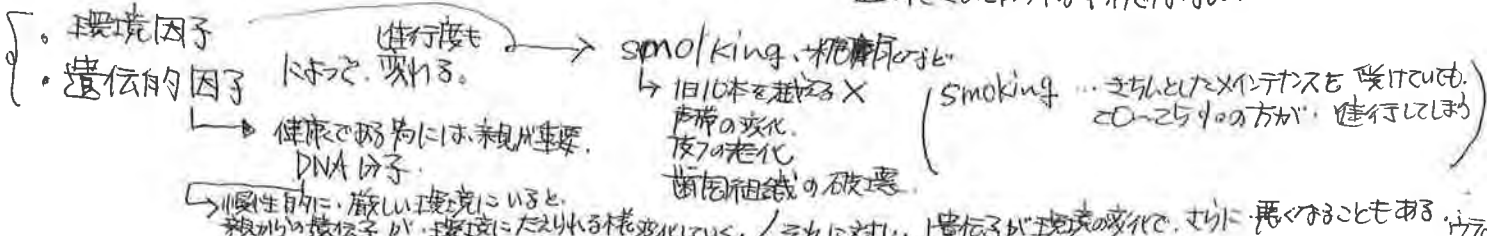 ・環境因子
・遺伝的因子
によって、進行度も変わる。
→ smolking、糖尿病など
↳ 1日10本を越える×
声帯の変化
皮フの老化
歯周組織の破壊
(smoking … きちんとしたメインテナンスを受けていても、
20〜25%の方が、進行してしまう)
→ 健康である為には、親が重要。
DNA 分子.
↳ 慢性的に、厳しい環境にいると、
親からの遺伝子が、環境にたえられる様変化していく。/それに対し、遺伝子が環境の変化で、さらに悪くなることもある。